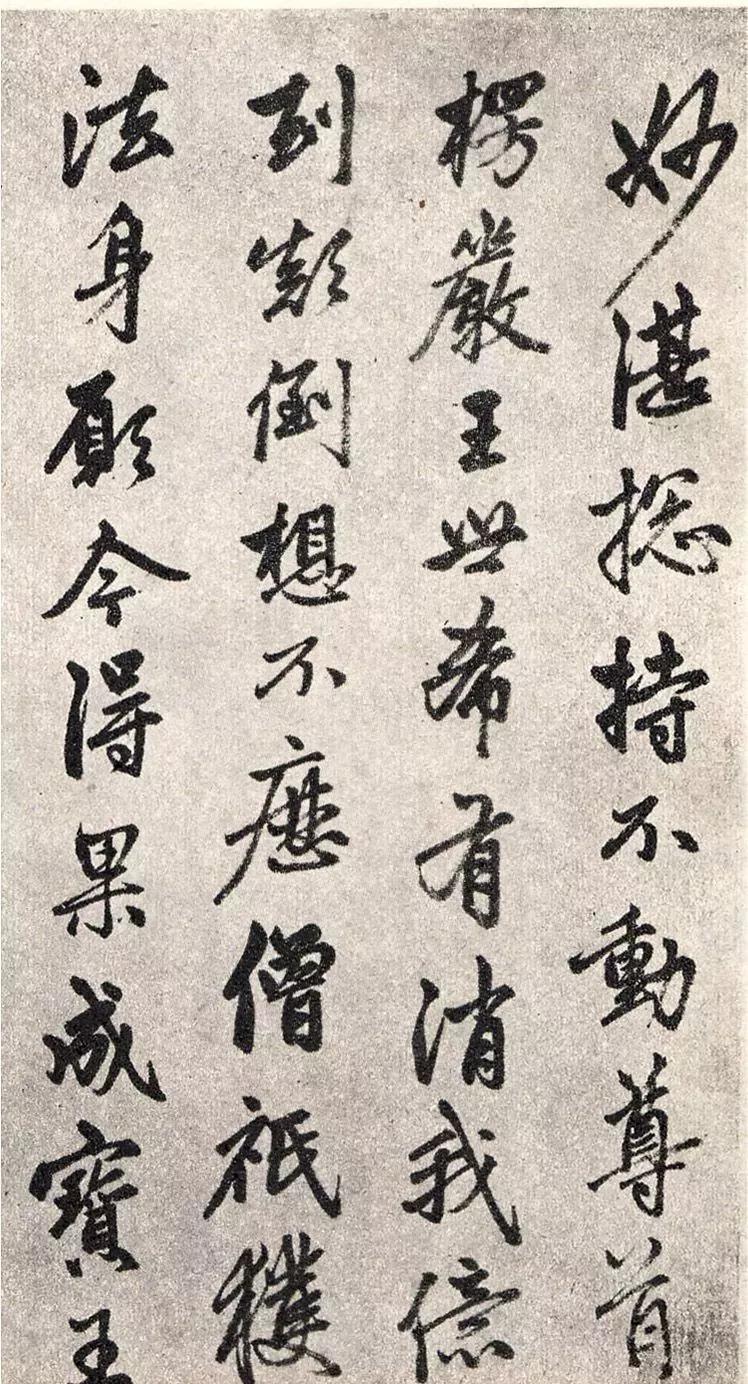 妙湛捴持不動尊首
楞嚴王世希有消我億
到顛倒想不歷僧祇獲
法身願今得果成寶王